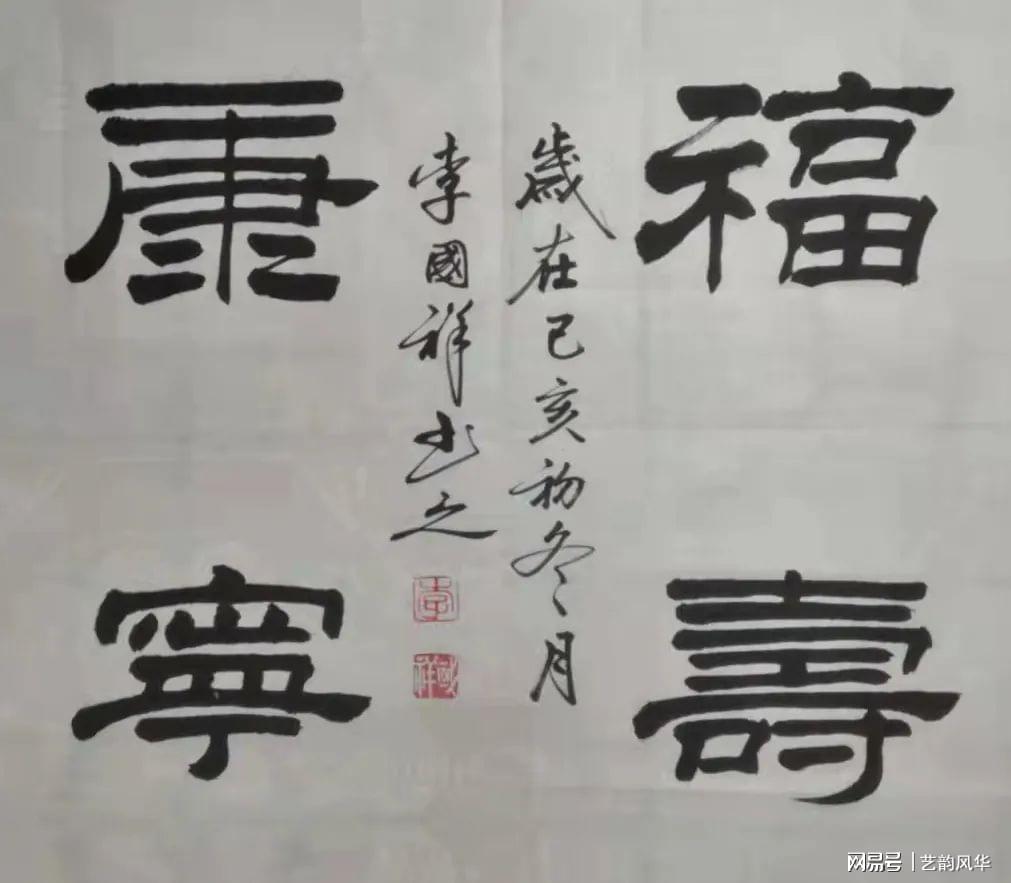 福壽
康寧
歲在己亥初冬月
李國祥书之
李
國祥
网易号 | 艺韵风华